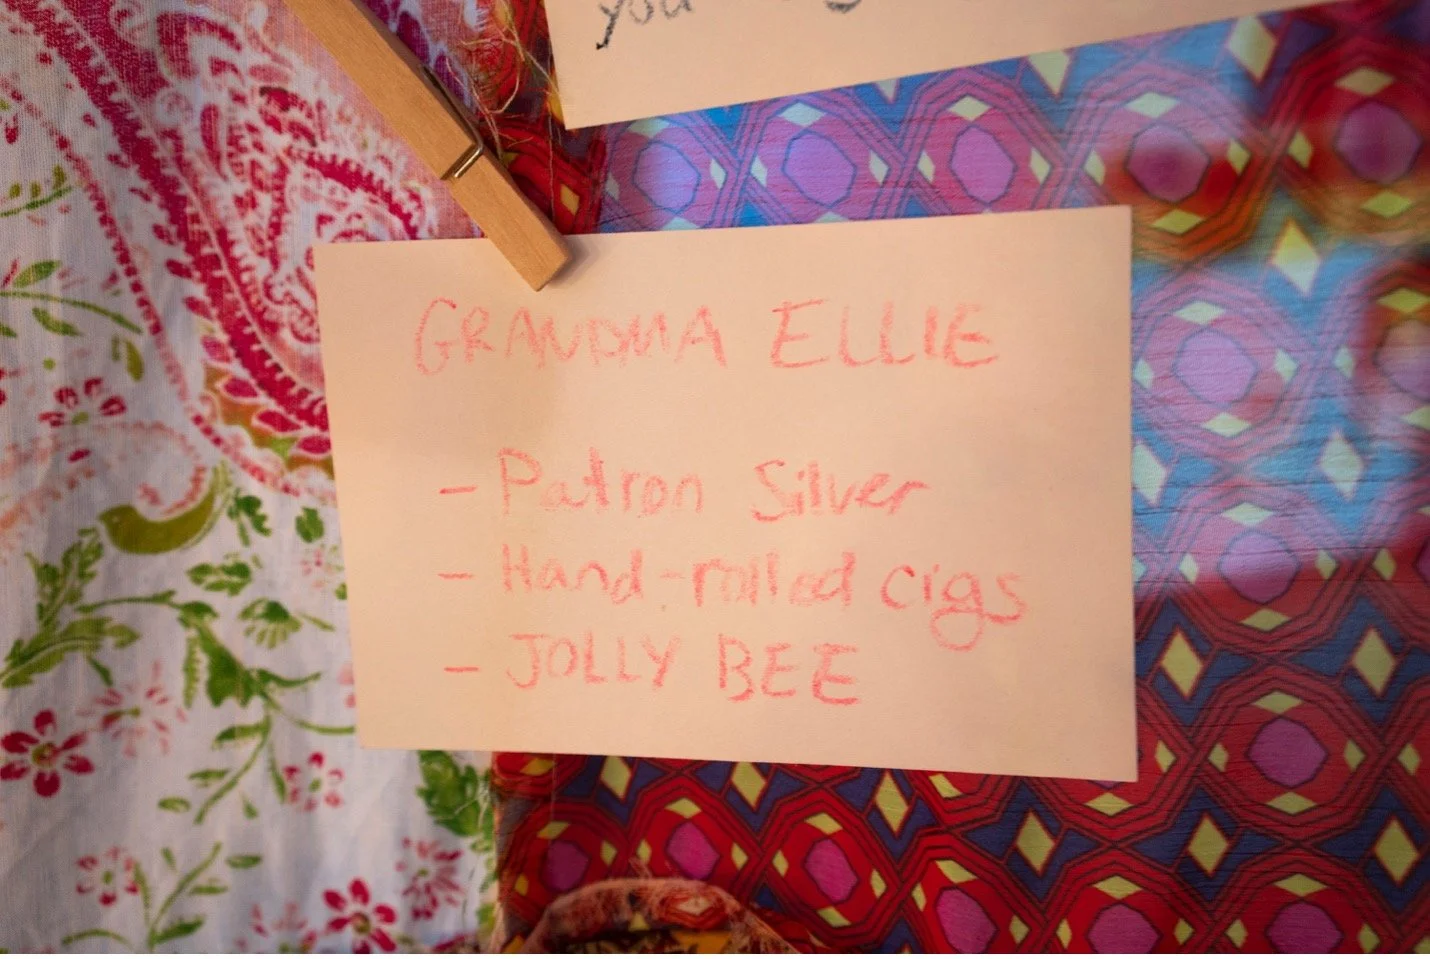 you
GRANDMA ELLIE
- Patron Silver
- Hand-rolled cigs
- JOLLY BEE